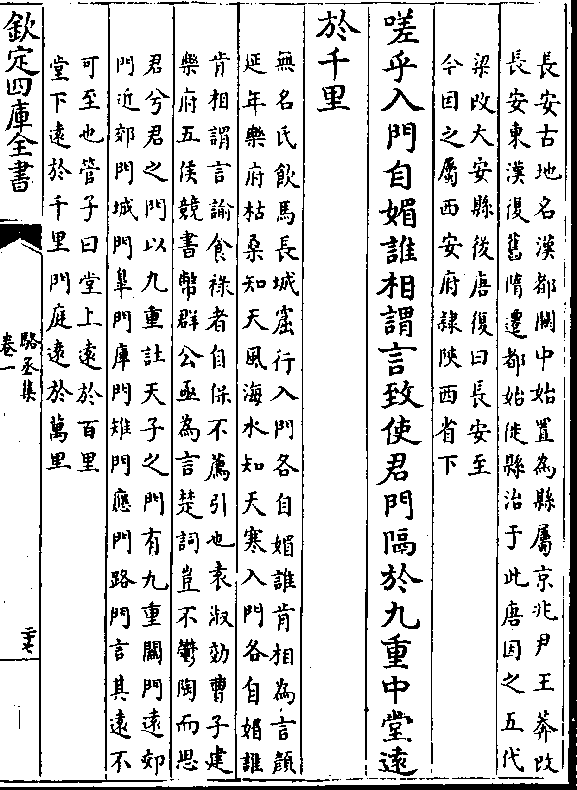 長安古地名漢都關中始置為縣屬京兆尹王莽改
長安東漢復舊隋遷都始徙縣治于此唐因之五代
梁改大安縣後唐復曰長安至
今因之屬西安府隸陜西省下
嗟乎入門自媚誰相謂言致使君門隔於九重中堂遠
於千里
無名氏飲馬長城窟行入門各自媚誰肯相為言顔
延年樂府枯桑知天風海水知天寒入門各自媚誰
肯相謂言諭食祿者自保不薦引也袁淑効曹子建
樂府五侯競書幣群公亟為言楚詞豈不鬱陶而思
君兮君之門以九重註天子之門有九重關門遠郊
門近郊門城門臯門庫門雉門應門路門言其遠不
可至也管子曰堂上遠於百里
堂下遠於千里門庭遠於萬里
欽定四庫全書
駱丞集
卷一
二十七